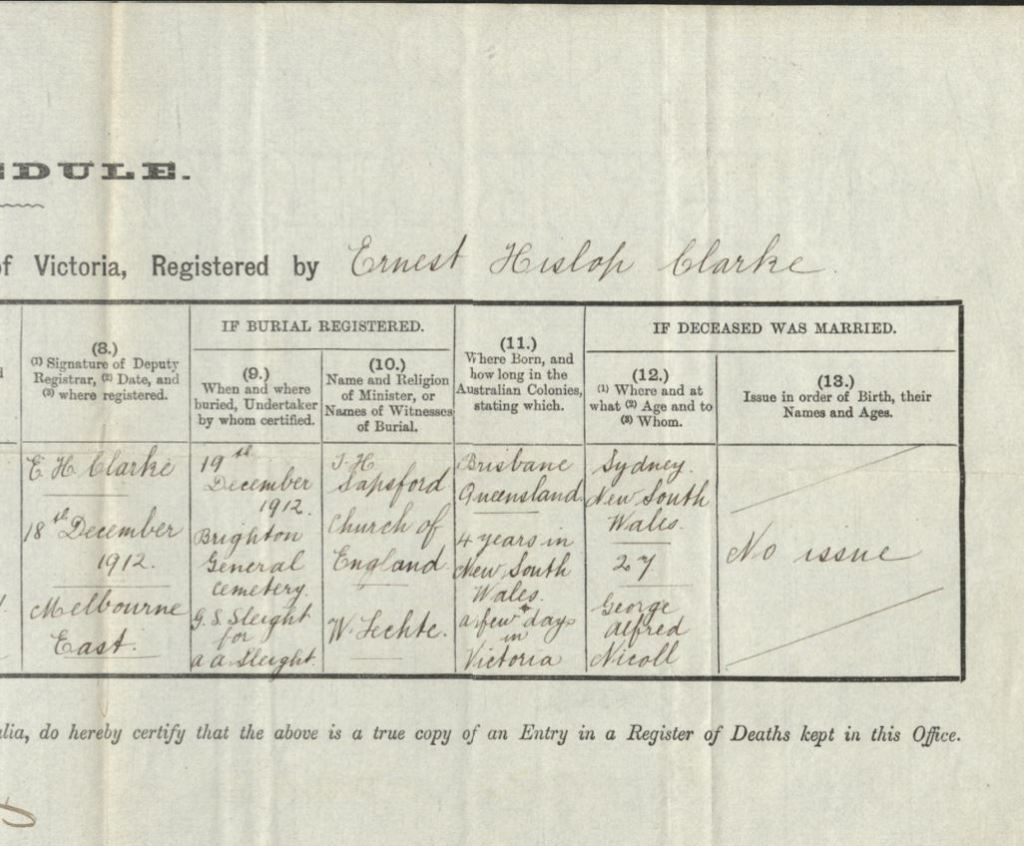 EDULE.
of Victoria, Registered by Ernest Hislop Clarke.
(8.)
(1) Signature of Deputy
Registrar, (2) Date, and
(3) where registered.
E H Clarke
18th December
1912.
Melbourne
East.
IF BURIAL REGISTERED.
(9.)
When and where
buried, Undertaker
by whom certified.
19th
December
1912.
Brighton
General
Cemetery.
G. S. Sleight
for
A A Sleight.
(10.)
Name and Religion
of Minister, or
Names of Witnesses
of Burial.
J. H.
Sapsford
Church of
England
W. Fechte.
(11.)
Where Born, and
how long in the
Australian Colonies,
stating which.
Brisbane
Queensland
4 years in
New South
Wales.
a few days
in
Victoria
IF DECEASED WAS MARRIED.
(12.)
(1) Where and at
what (2) Age and to
(3) Whom.
Sydney.
New South
Wales.
27
George
Alfred
Nicoll
(13.)
Issue in order of Birth, their
Names and Ages.
No issue
alia, do hereby certify that the above is a true copy of an Entry in a Register of Deaths kept in this Office.